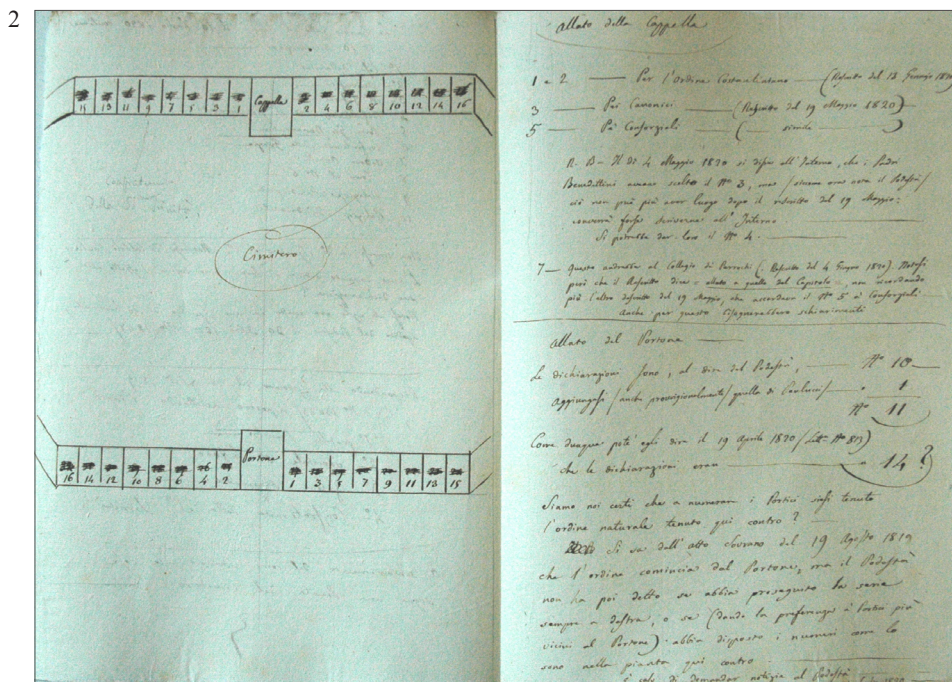 2
15 13 11 9 7 5 3 1 Cappella 2 4 6 8 10 12 14 16
Cimitero
16 14 12 10 8 6 4 2 Portone 1 3 5 7 9 11 13 15
Allato della Cappella
1 e 2 — Per l'Ordine Costantiniano — (Rescritto del 13 Gennajo
3 — Pei Canonici (Rescritto del 19 Maggio 1820)
5 — Pei Consorziali — ( — simile — )
N. B— Il dì 4 Maggio 1820 si disse all'Interno, che i Padri
Benedettini avean scelto il N° 3, ma / siccome
ciò non può più aver luogo dopo il rescritto del 19 Maggio:
converrà forse scriverne all'Interno.
Si potrebbe dar loro il N° 4.
7 — Questo andrebbe al Collegio di Parrochi (. Rescritto del 4 Giugno 1820). Notasi
però che il Rescritto dice = allato a quello del Capitolo =, non ricordando
più l'altro del 19 Maggio, che accordava il N° 5 ai Consorziali
Anche per questo bisognerebbero schiarimenti
Allato del Portone —
Le dichiarazioni sono, al dire del Podestà, — N° 10 —
Aggiungasi / anche provvisionalmente / quella di — " 1
N° 11
Come dunque potè egli dire il 19 Aprile 1820 / Lett. N° 813)
che le dichiarazioni eran — " 14?
Siamo noi certi che a numerar i Portici siasi tenuto
l'ordine naturale tenuto qui contro? —
Si sa dall'atto Sovrano del 19 Agosto 1819
che l'ordine comincia dal Portone, ma il Podestà
non ha poi detto se abbia proseguito la serie
sempre a destra, o se (dando la preferenza ai Portici più
vicini al Portone) abbia disposto i numeri come lo
sono nella pianta qui contro —
di domandar notizie al Podestà